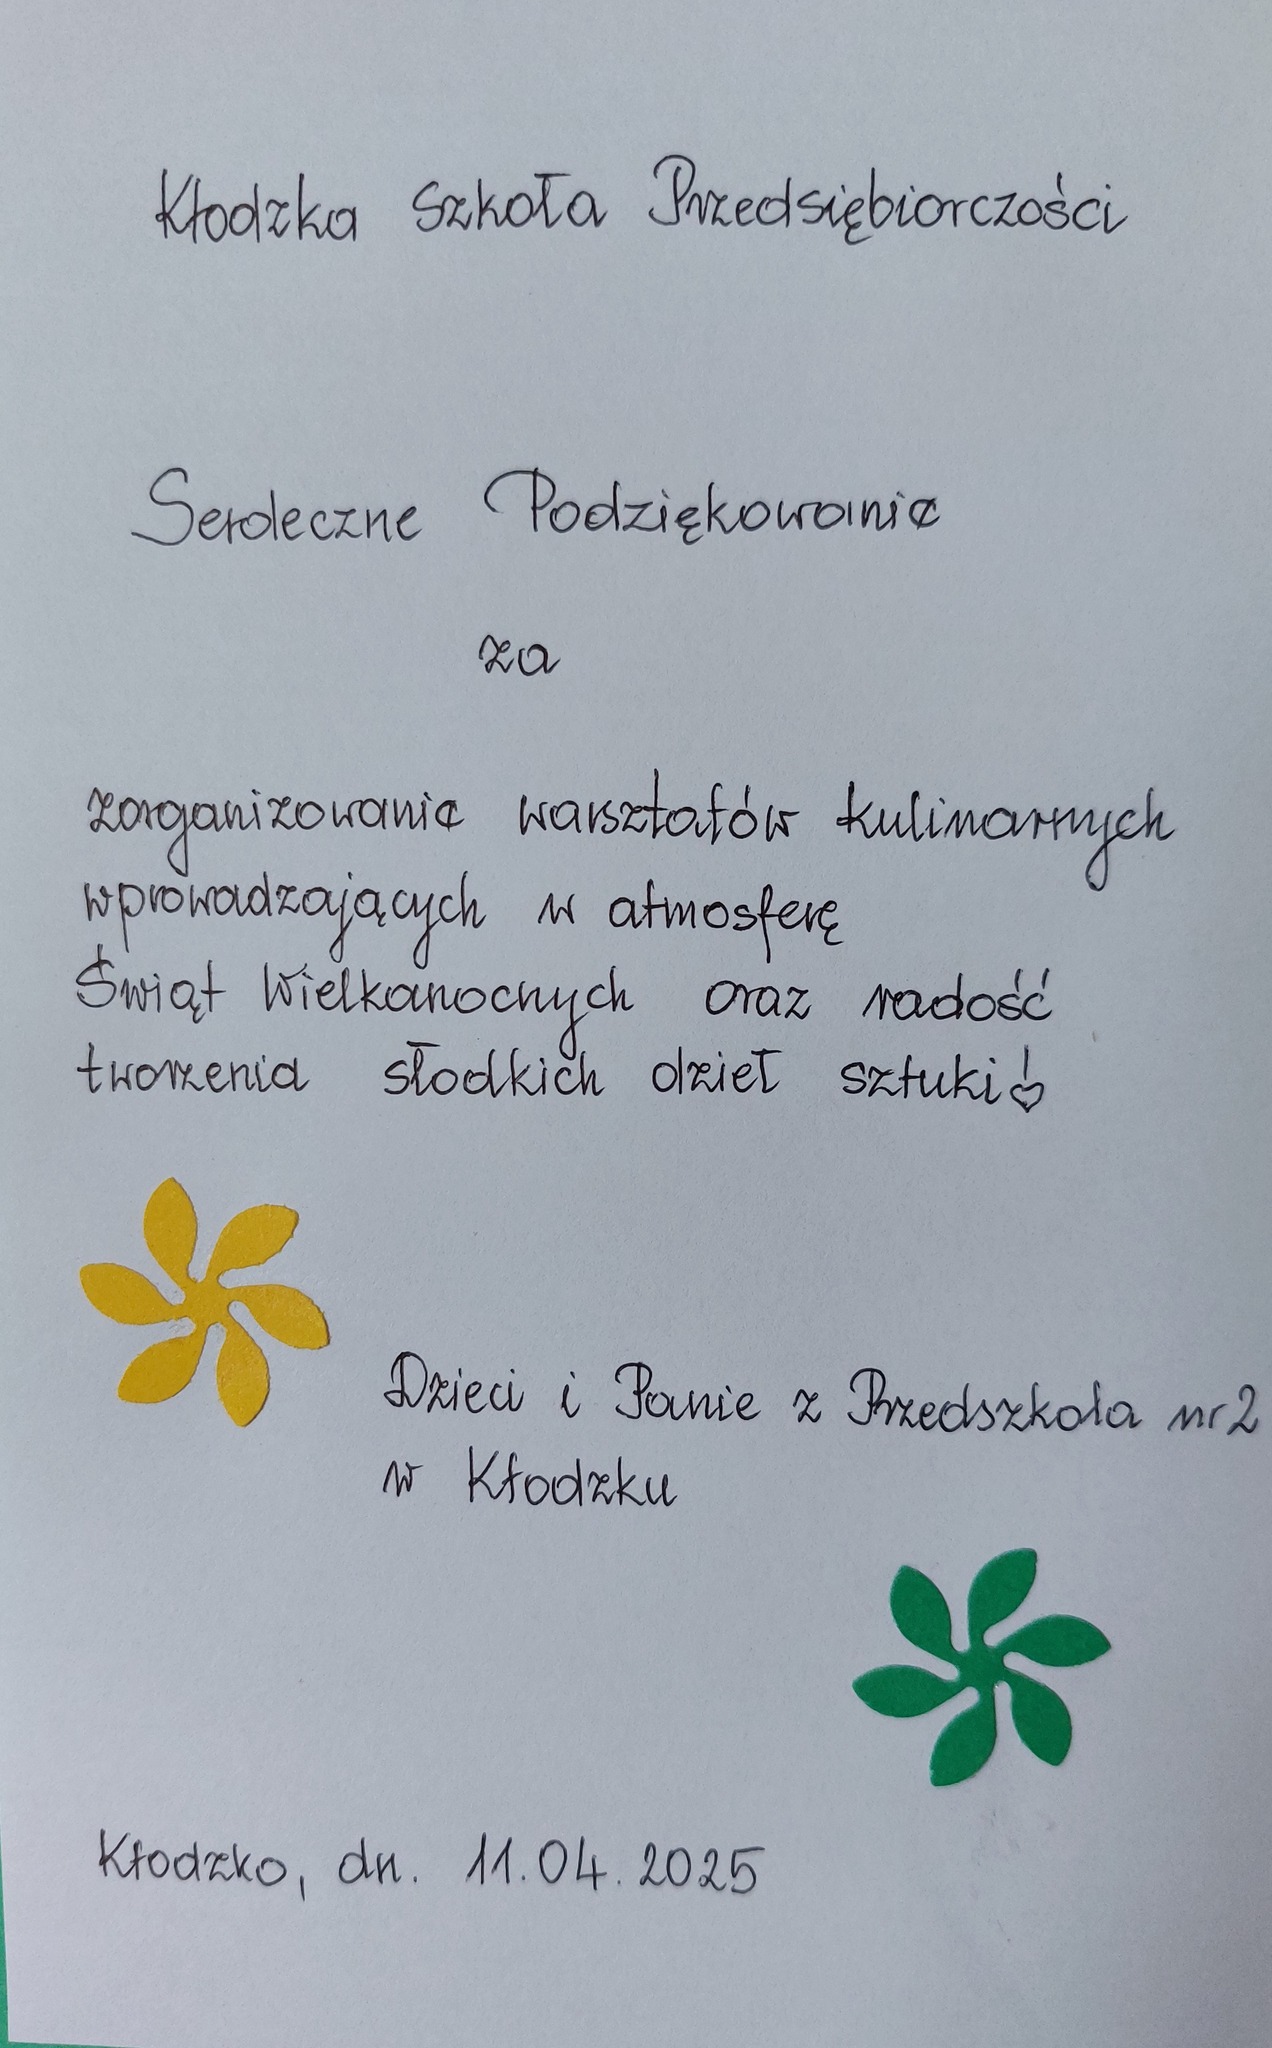 Kłodzka Szkoła Przedsiębiorczości
Serdeczne Podziękowanie
za
zorganizowanie warsztatów kulinarnych
wprowadzających w atmosferę
Świąt Wielkanocnych oraz radość
tworzenia słodkich dzieł sztuki!
Dzieci i Panie z Przedszkola nr 2
w Kłodzku
Kłodzko, dn. 11.04.2025